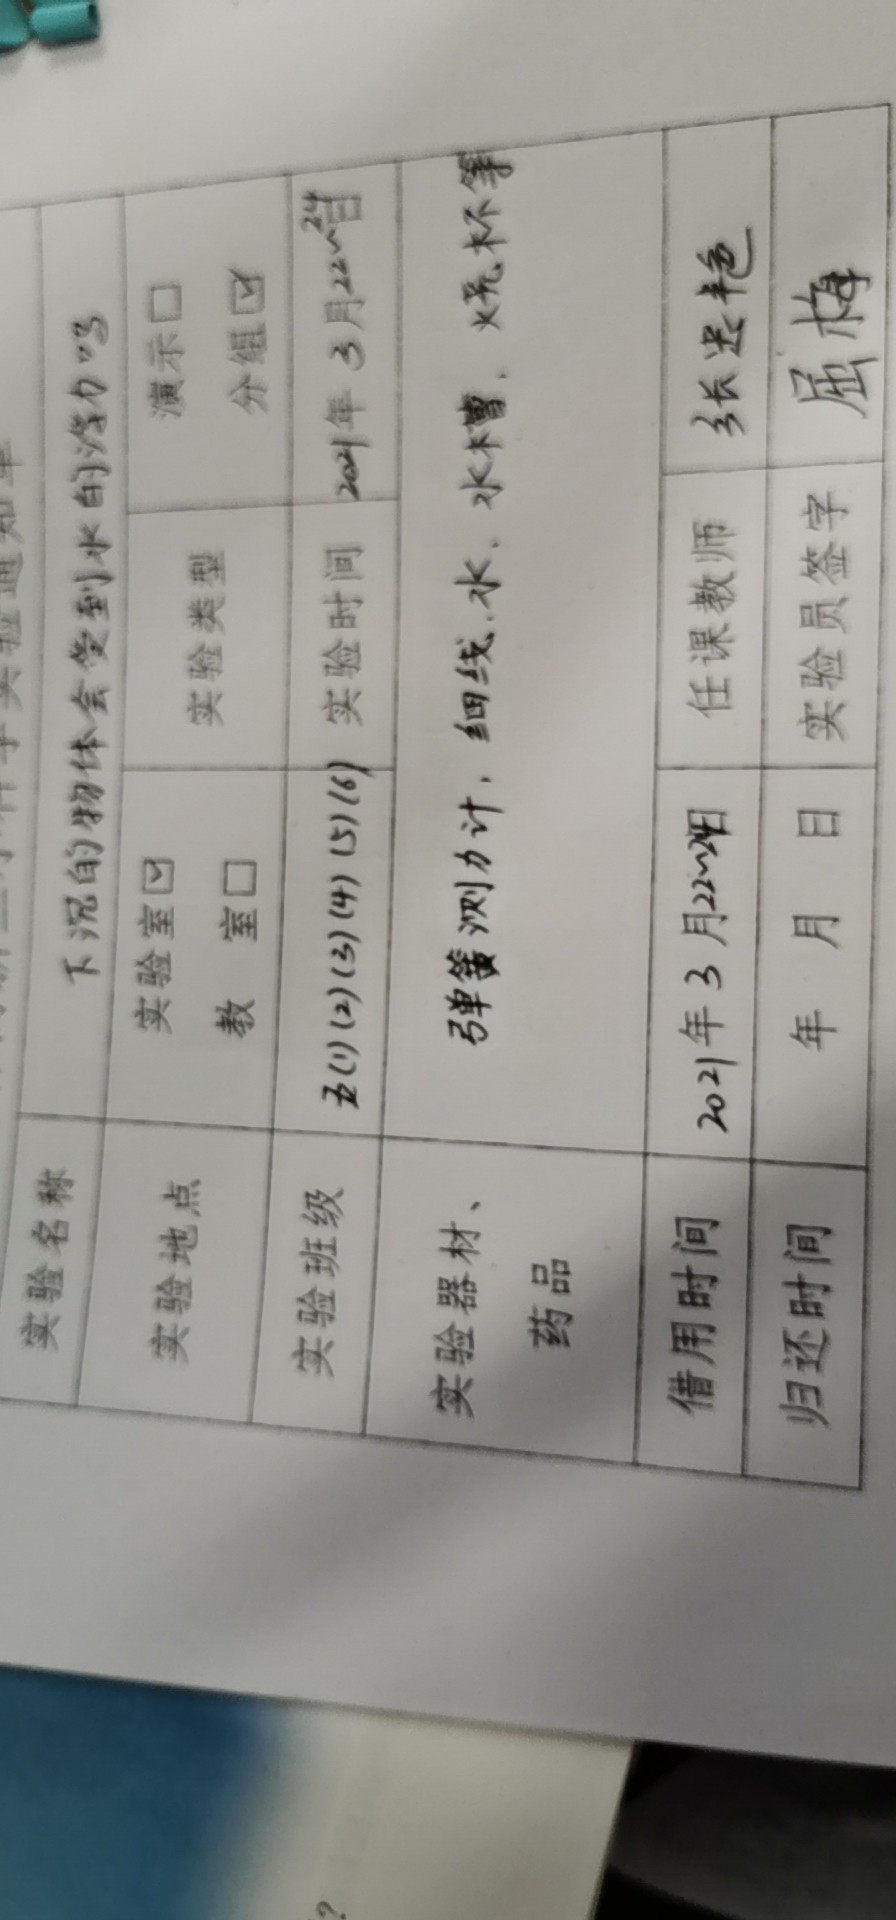 科学实验通知单
实验名称 下沉的物体会受到水的浮力吗
实验地点 实验室☑ 教 室□ 实验类型 演示□ 分组☑
实验班级 五(1)(2)(3)(4)(5)(6) 实验时间 2021年3月22~24日
实验器材、药品 弹簧测力计、细线、水、水槽、烧杯等
借用时间 2021年3月22~24日 任课教师 张忠艳
归还时间 年 月 日 实验员签字 屈梅
?